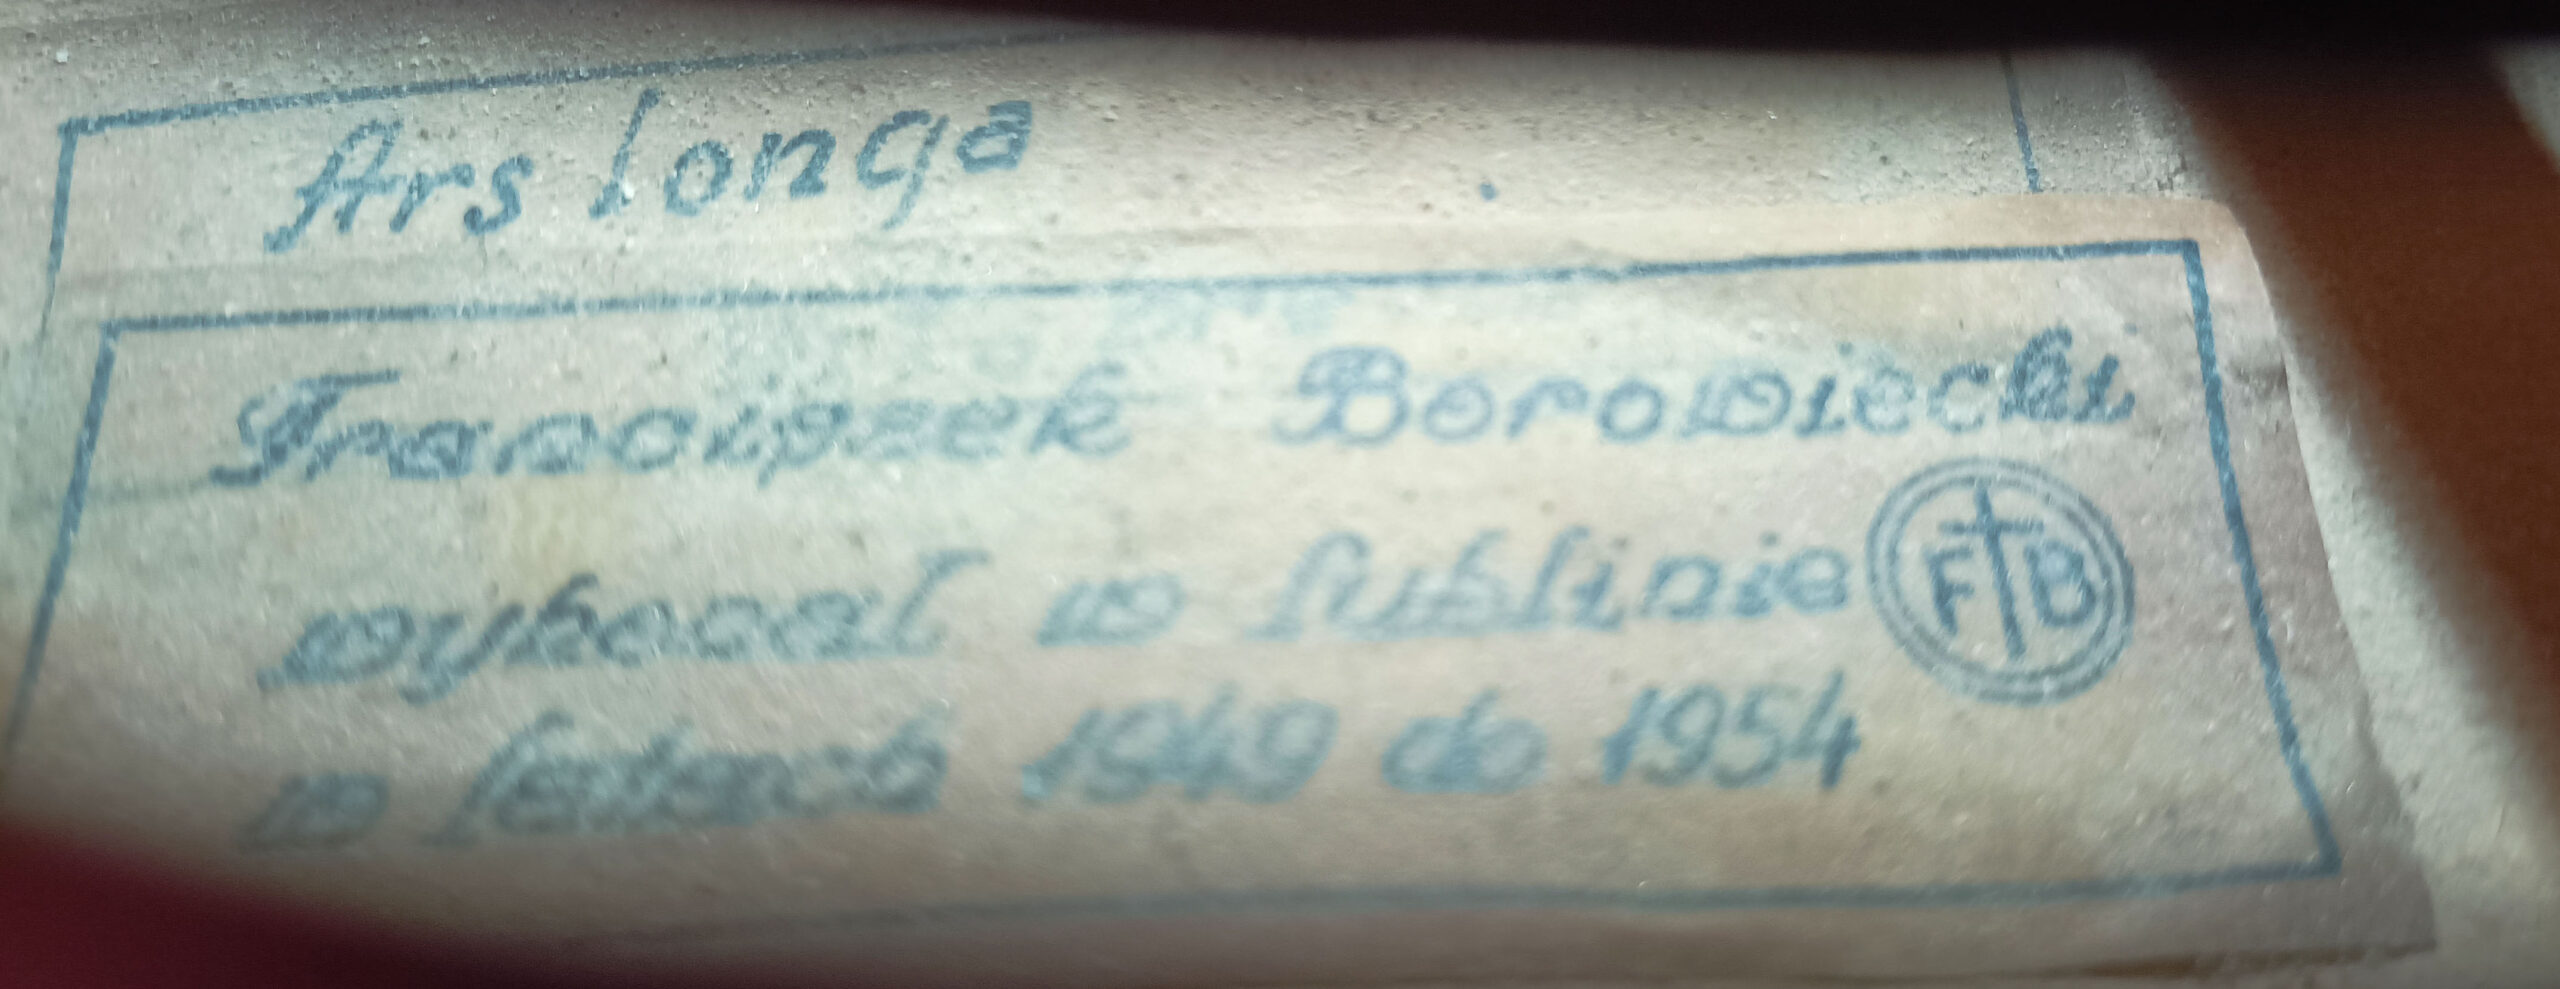 Ars longa
Franciszek Borowiecki
wykonał w Lublinie
F B
w latach 1949 do 1954